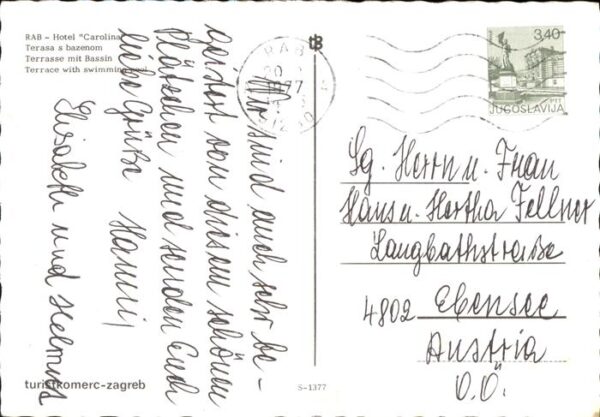 RAB – Hotel "Carolina"
Terasa s bazenom
Terrasse mit Bassin
Terrace with swimming pool
Wir sind auch sehr be-
geistert von diesem schönen
Plätzchen und senden Euch
liebe Grüße Hanni,
Elisabeth und Helmut
RAB
77
3,40
JUGOSLAVIJA
Sg. Herrn u. Frau
Hans u. Hertha Fellner
Langbathstraße
4802 Ebensee
Austria
O.Ö.
turistkomerc-zagreb
S-1377